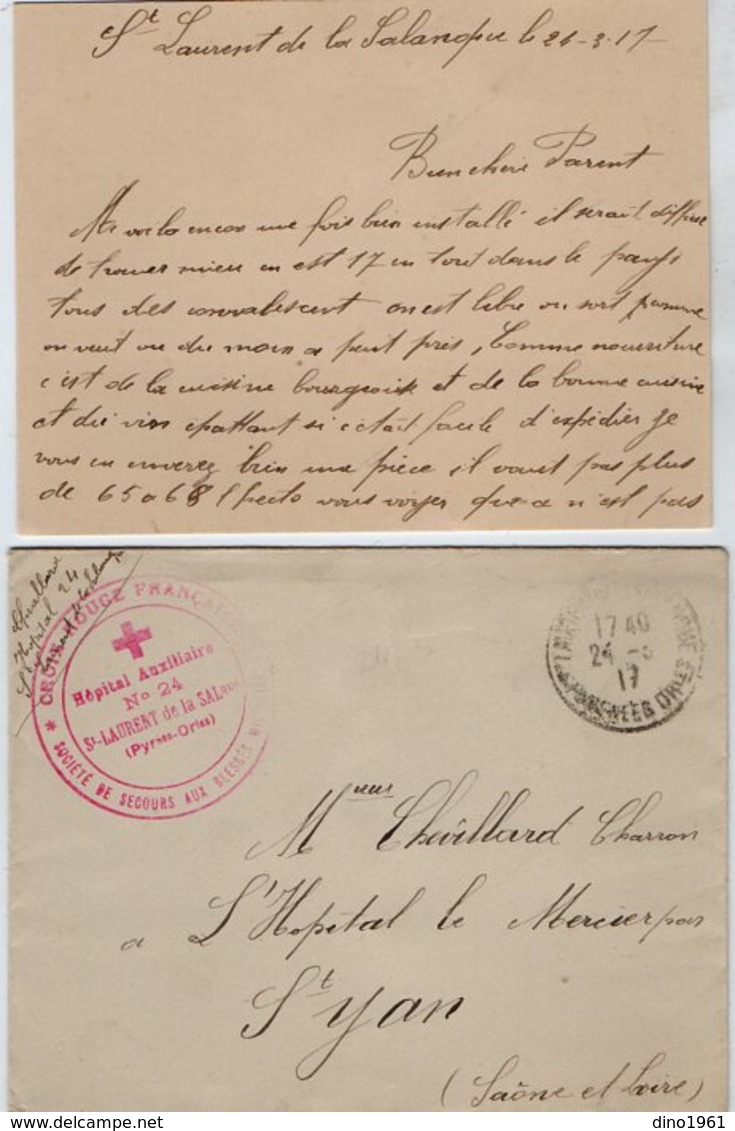 St Laurent de la Salanque le 24-3-17
Bien chère Parent
Me voila encor une fois bien installé il serait difficile
de trouver mieu on est 17 en tout dans le pays
tous des convalescent on est libre on sort comme
on veut ou du moin a peut près, Comme nourriture
c'est de la cuisine bourgeoise et de la bonne cuisine
et du vin épattant si c'était facile d'expédier je
vous en enverez bien une pièce il vaut pas plus
de 65 a 68 l'hecto vous voyez que ce n'est pas
Hopital 24
St Laurent de la Salanque
CROIX ROUGE FRANÇAISE
Hôpital Auxiliaire
No 24
St-LAURENT de la SALque
(Pyrees-Orles)
* SOCIÉTÉ DE SECOURS AUX BLESSÉS MI
17 40
24 -3
17
PYRENEES ORLES
Mme Chevillard Charron
a L'Hopital le Mercier par
St yan
(Saône et Loire)
dino1961